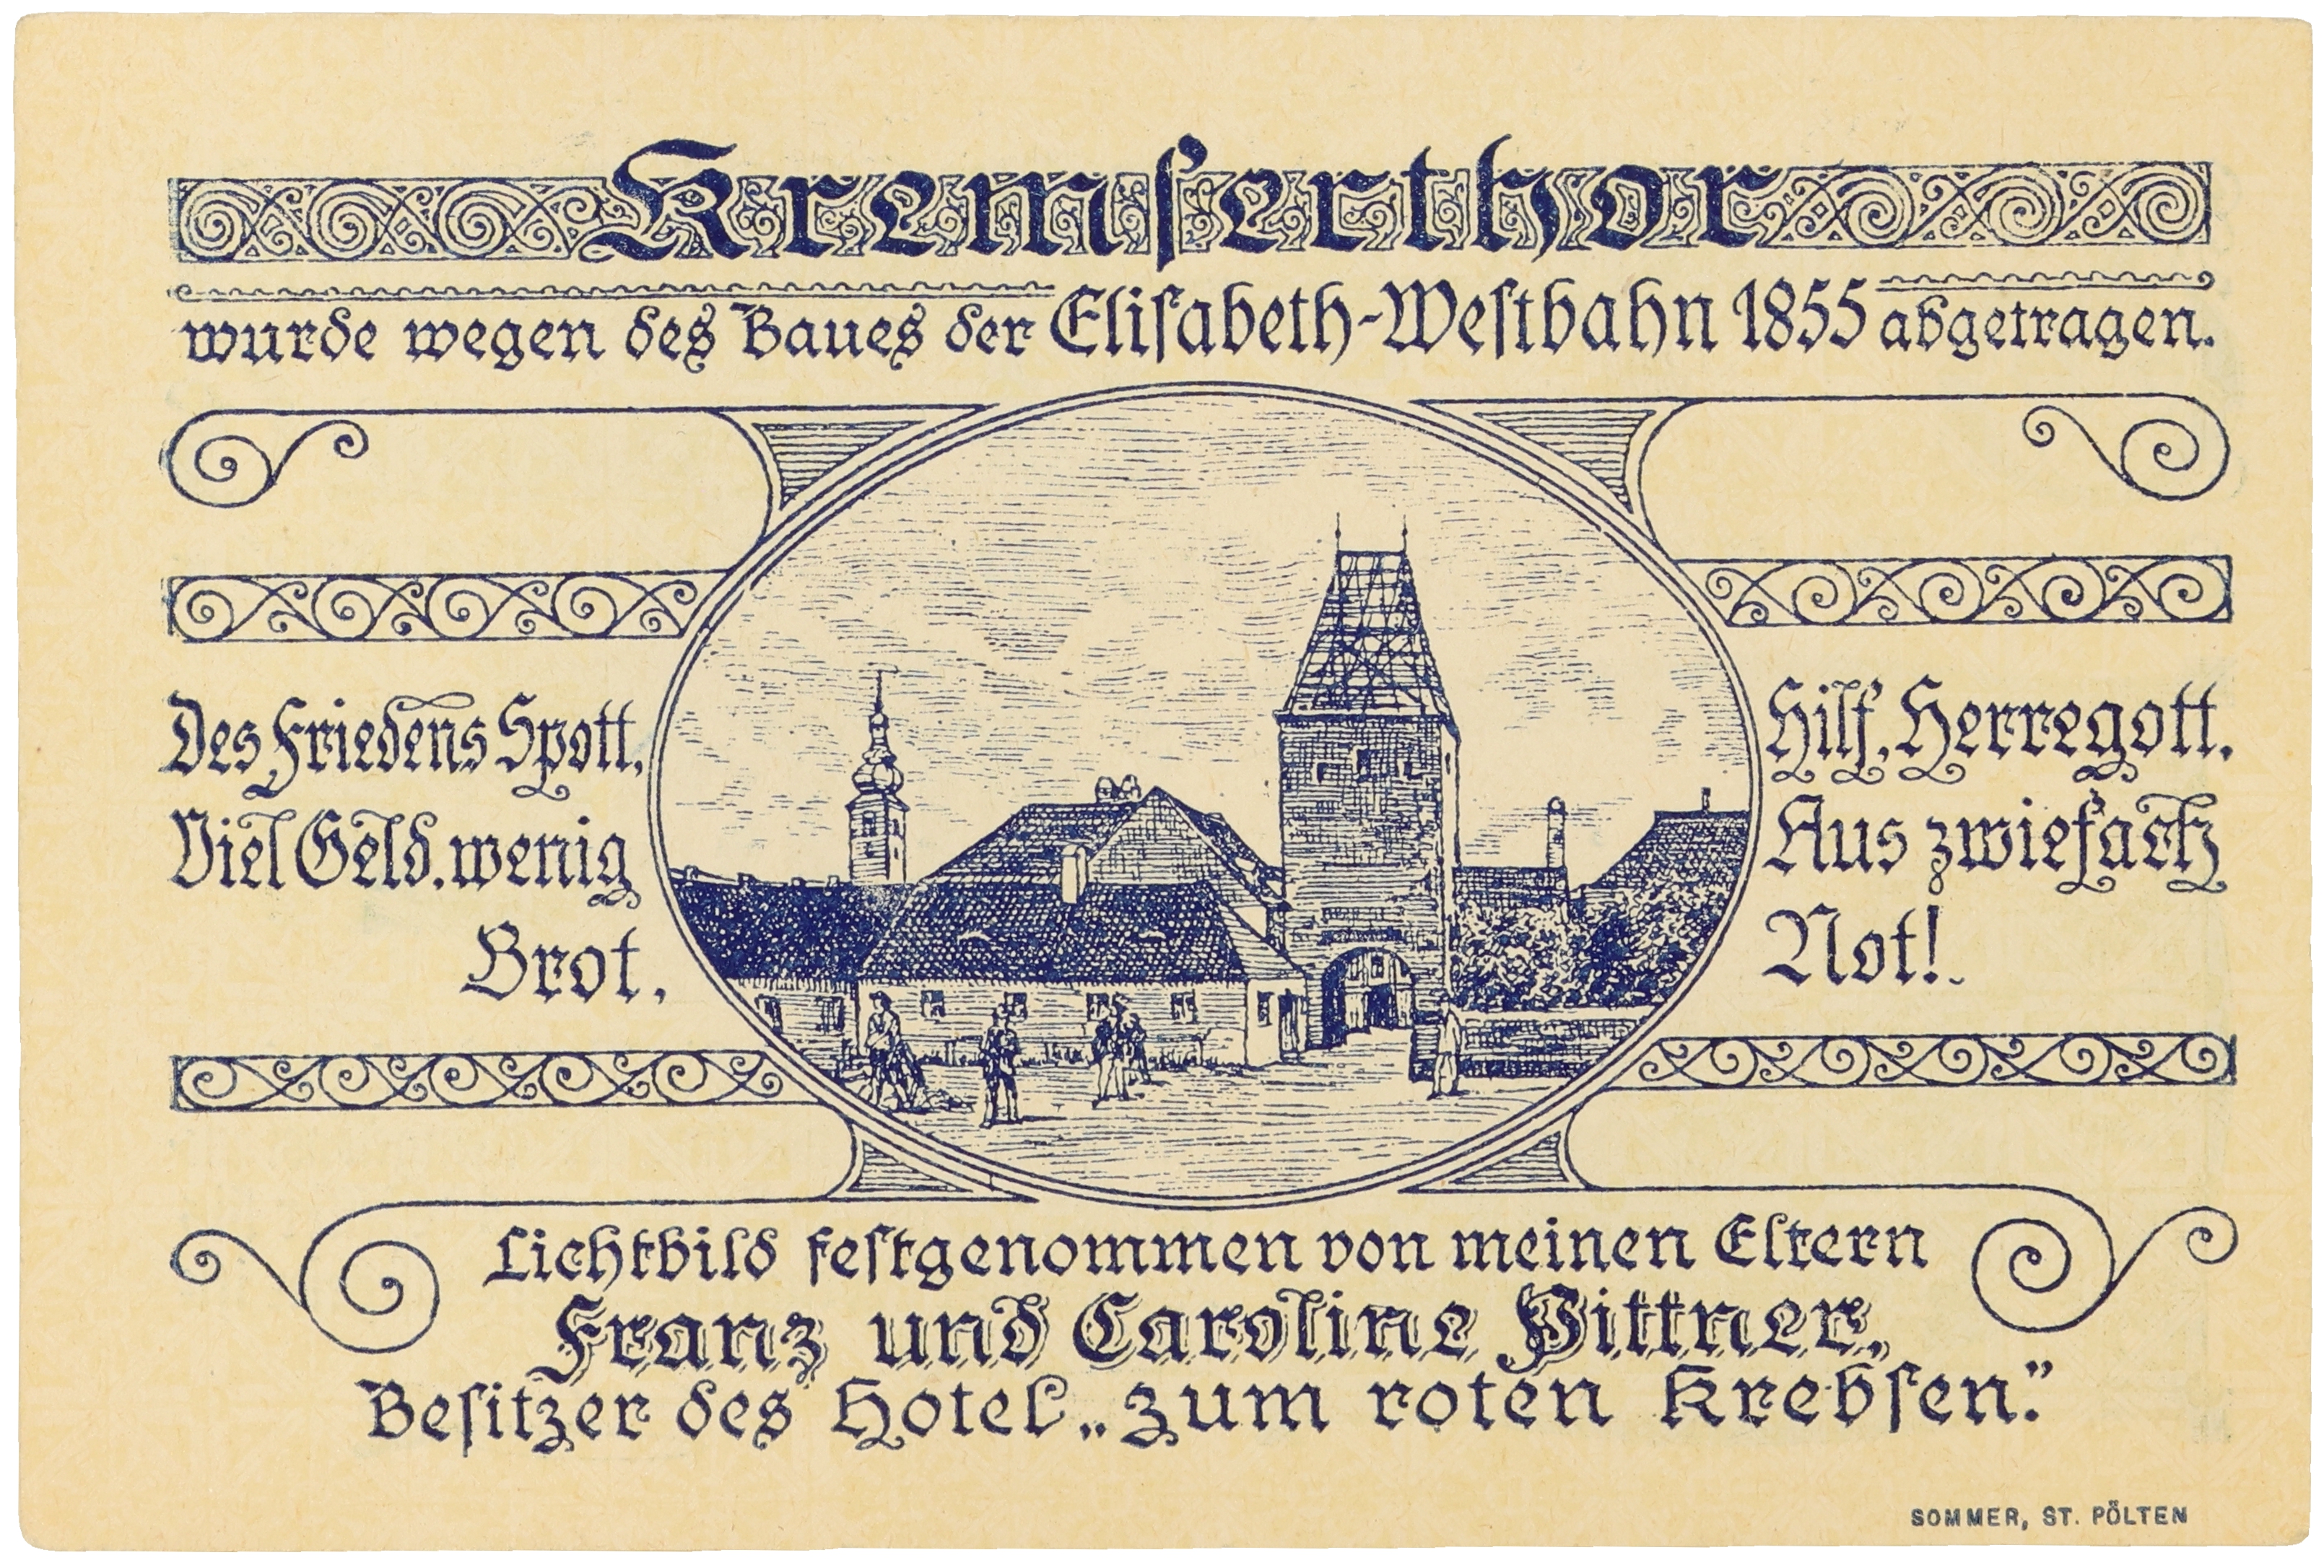 Kremſerthor
wurde wegen des Baues der Eliſabeth-Weſtbahn 1855 abgetragen.
Des Friedens Spott,
Viel Geld, wenig
Brot,
Hilf, Herregott,
Aus zwiefach
Not!
Lichtbild feſtgenommen von meinen Eltern
Franz und Caroline Pittner,
Beſitzer des Hotel „zum roten Krebſen.”
SOMMER, ST. PÖLTEN